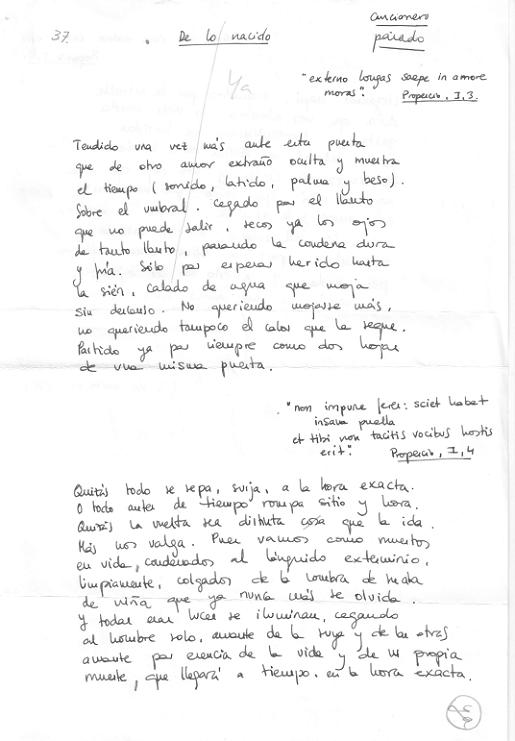 37.
De lo nacido
Cancionero
parado
Ya
"externo longas saepe in amore
moras". Propercio, I, 3.
Tendido una vez más ante esta puerta
que de otro amor extraño oculta y muestra
el tiempo (sonido, latido, palma y beso).
Sobre el umbral. Cegado por el llanto
que no puede salir, secos ya los ojos
de tanto llanto, pasando la condena dura
y fría. Sólo por esperar herido hasta
la sien, calado de agua que moja
sin descanso. No queriendo mojarse más,
no queriendo tampoco el calor que la seque.
Partido ya por siempre como dos hojas
de una misma puerta.
"non impune feres: sciet haec
insana puella
et tibi non tacitis vocibus hostis
erit". Propercio, I, 4
Quizás todo se sepa, a la hora exacta.
O todo antes de tiempo rompa sitio y hora.
Quizás la vuelta sea distinta cosa que la ida.
Más nos valga. Pues vamos como muertos
en vida, condenados al lánguido exterminio,
limpiamente, colgados de la sombra de
de niña que ya nunca más se olvida.
Y todas esas luces se iluminan, cegando
al hombre solo, amante de la suya y de las otras
amante por esencia de la vida y de su propia
muerte, que llegará a tiempo. en la hora exacta.